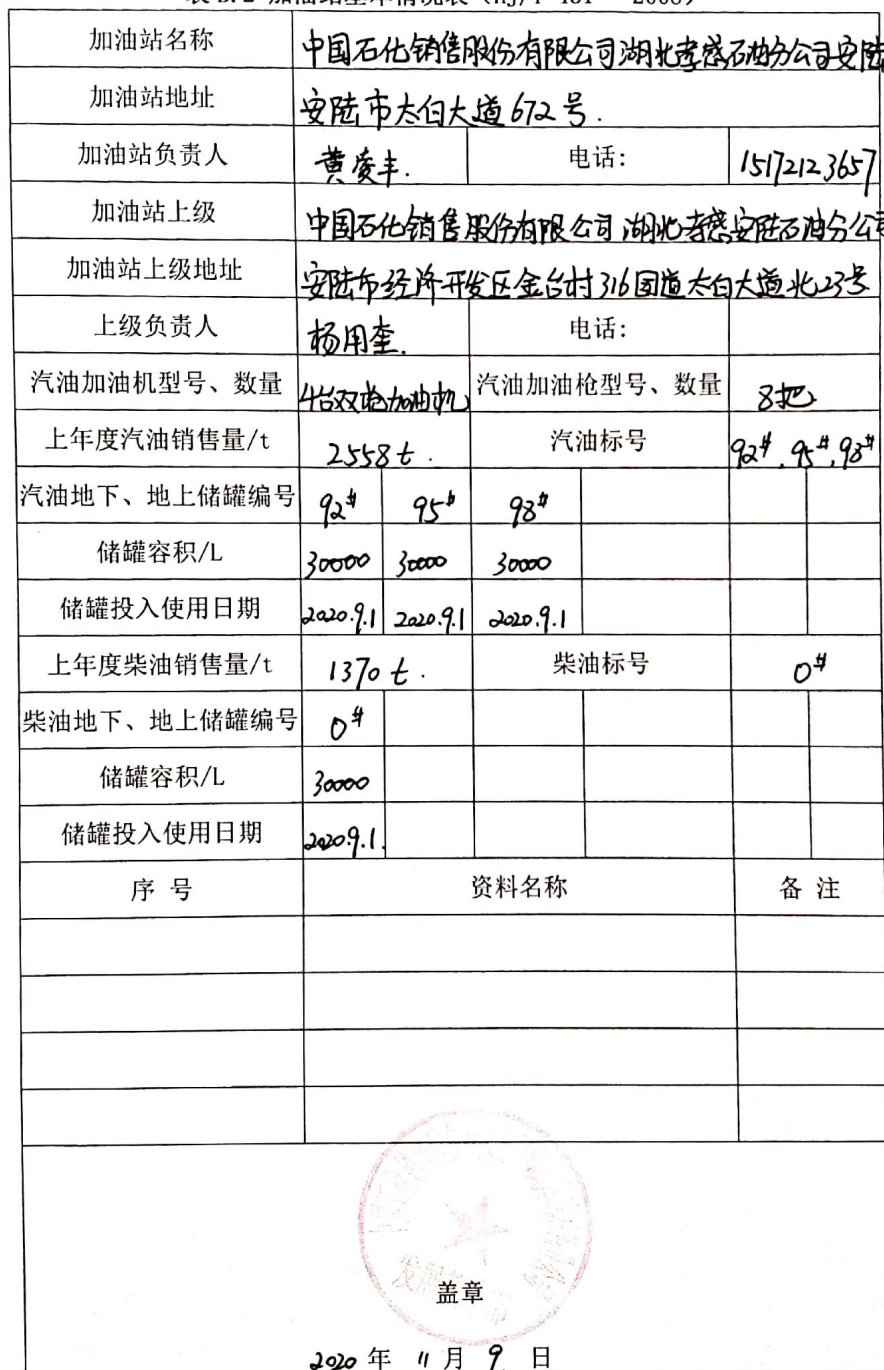 加油站基本情况表
加油站名称 中国石化销售股份有限公司湖北孝感石油分公司安陆
加油站地址 安陆市太白大道672号.
加油站负责人 黄凌丰. 电话: 15172123657
加油站上级 中国石化销售股份有限公司湖北孝感安陆石油分公司
加油站上级地址 安陆市经济开发区金台村316国道太白大道北23号
上级负责人 杨用奎. 电话:
汽油加油机型号、数量 4台双枪加油机 汽油加油枪型号、数量 8把
上年度汽油销售量/t 2558t. 汽油标号 92#.95#.98#
汽油地下、地上储罐编号 92# 95# 98#
储罐容积/L 30000 30000 30000
储罐投入使用日期 2020.9.1 2020.9.1 2020.9.1
上年度柴油销售量/t 1370t. 柴油标号 0#
柴油地下、地上储罐编号 0#
储罐容积/L 30000
储罐投入使用日期 2020.9.1.
序 号 资料名称 备 注
盖章
2020年 11月 9 日